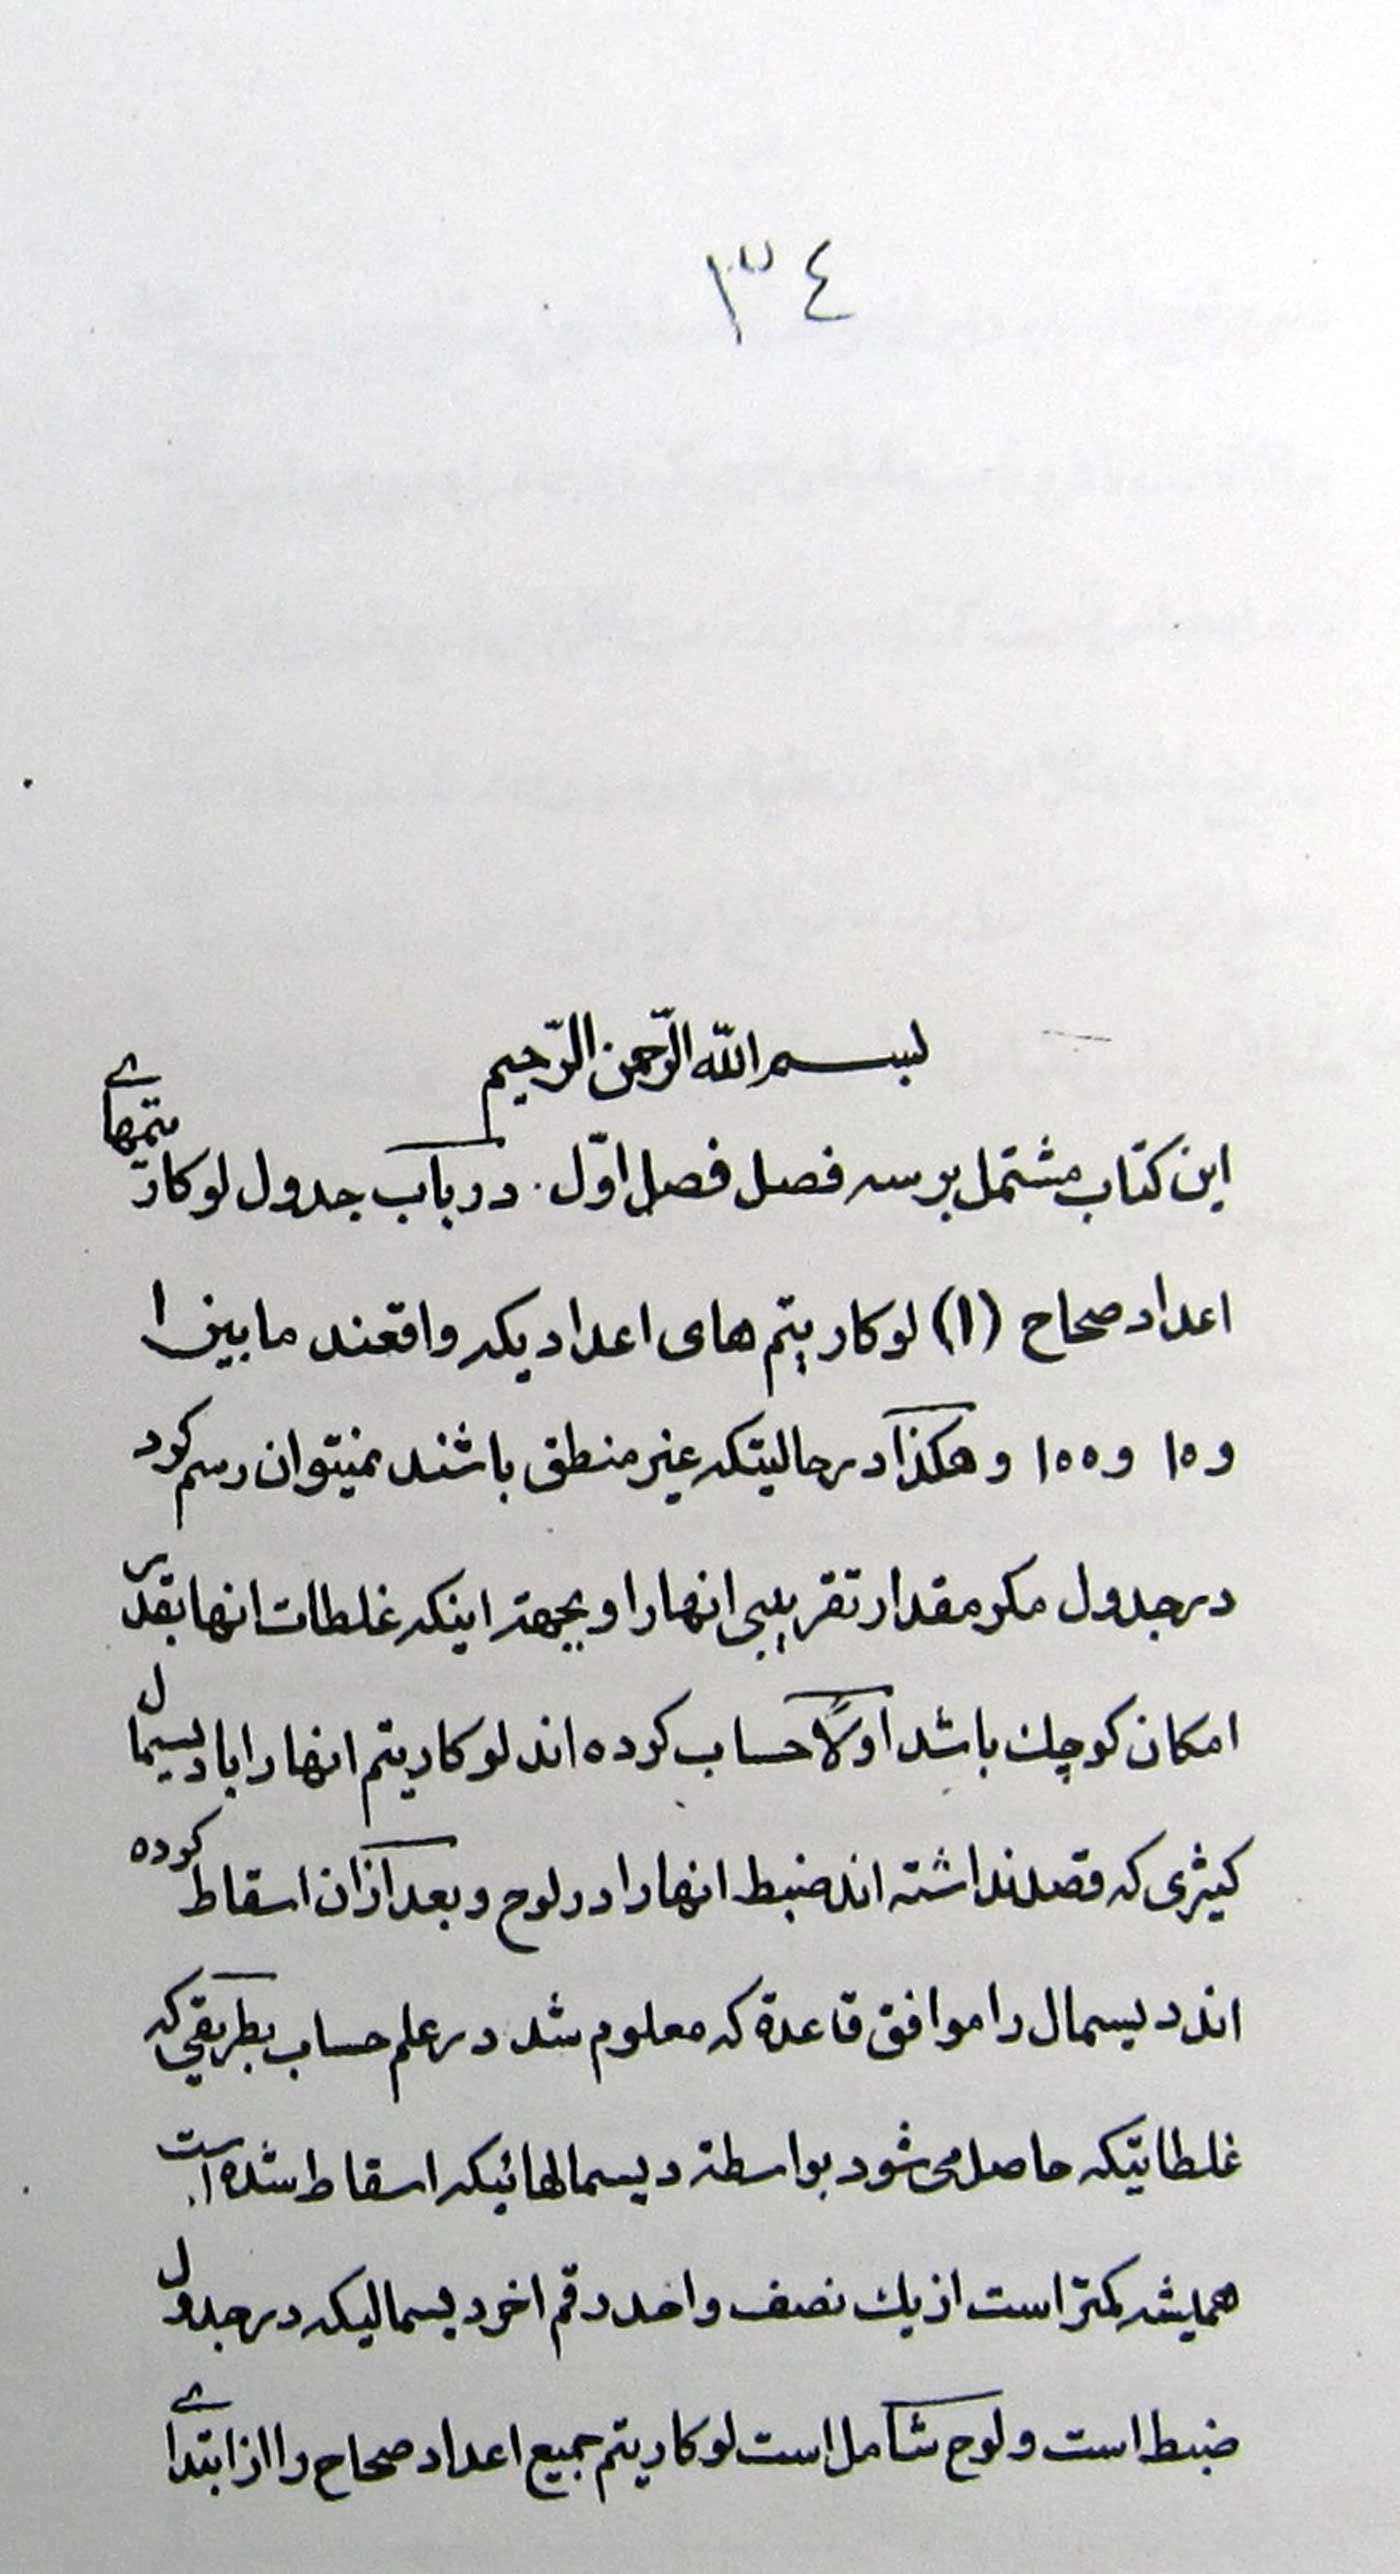 ١٣٤
بسم اللّه الرّحمن الرّحیم
این کتاب مشتمل بر سه فصل فصل اوّل. در باب جدول لوکاریتمهای
اعداد صحاح (١) لوکاریتم های اعدادیکه واقعند مابین ١
و ١٥ و ١٥٥ و هکذا در حالیتکه غیر منطق باشند نمیتوان رسم کرد
در جدول مکر مقدار تقریبی انها را و بجهة اینکه غلطات انها بقدر
امکان کوچك باشد اولًا حساب کرده اند لوکاریتم انها را با دیسمال
کیثری که قصد نداشته اند ضبط انها را در لوح و بعد از ان اسقاط کرده
اند دیسمال را موافق قاعدة که معلوم شد در علم حساب بطریقی که
غلطاتیکه حاصل می شود بواسطة دیسمالهائیکه اسقاط شده است
همیشه کمتر است از یك نصف واحد رقم اخر دیسمالیکه در جدول
ضبط است و لوح شامل است لوکاریتم جمیع اعداد صحاح را از ابتدای